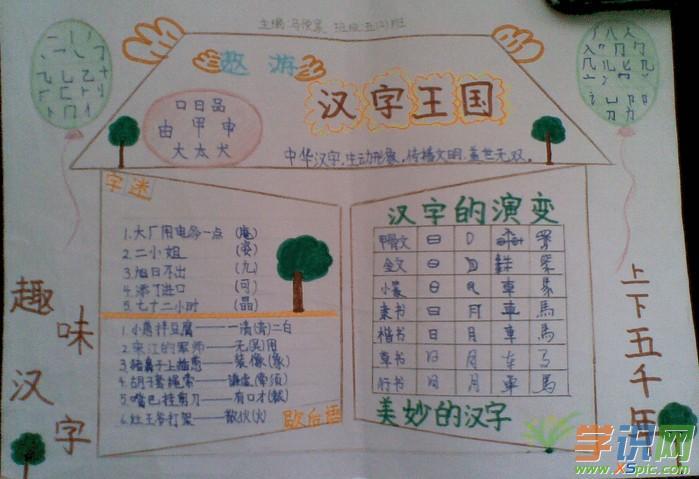 主编:马俊豪 班级:五(2)班
遨游
汉字王国
口日品
由甲申
大太犬
中华汉字,生动形象,传播文明,盖世无双。
字迷
1.大厂用电多一点 (庵)
2.二小姐 (姿)
3.旭日不出 (九)
4.添丁进口 (可)
5.七十二小时 (晶)
1.小葱拌豆腐——一清(青)二白
2.宋江的军师——无(吴)用
3.猪鼻子上插葱——装像(象)
4.胡子套绳索——谦虚(牵须)
5.嘴巴挂剪刀——有口才(裁)
6.灶王爷打架——散伙(火)
歇后语
汉字的演变
甲骨文
金文
小篆
隶书 日 月 車 馬
楷书 日 月 車 馬
草书 日 月 车 马
行书 日 月 車 馬
美妙的汉字
趣味汉字
上下五千年
学识网
www.XSpic.com